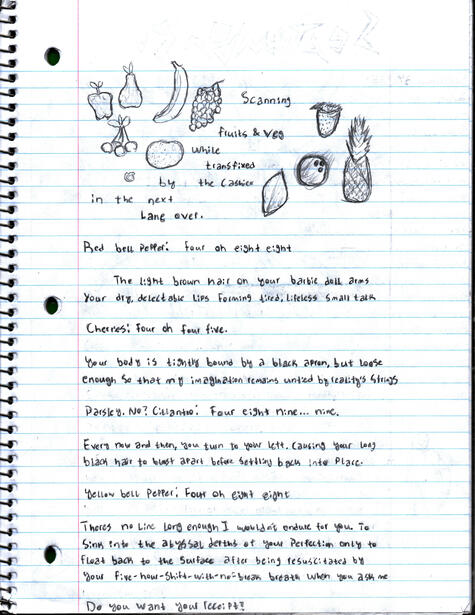 Scanning
fruits & veg
while
transfixed
by the cashier
in the next
lane over.
Red bell pepper: four oh eight eight
The light brown hair on your barbie doll arms
Your dry, delectable lips forming tired, lifeless small talk
Cherries: Four oh four five.
Your body is tightly bound by a black apron, but loose
enough so that my imagination remains untied by reality's strings
Parsley. No? Cilantro: Four eight nine... nine.
Every now and then, you turn to your left. Causing your long
black hair to burst apart before settling back into place.
Yellow bell pepper: Four oh eight eight
Theres no line long enough I wouldn't endure for you. To
Sink into the abyssal depths of your perfection only to
float back to the surface after being resuscitated by
your five-hour-shift-with-no-break breath when you ask me
Do you want your receipt?